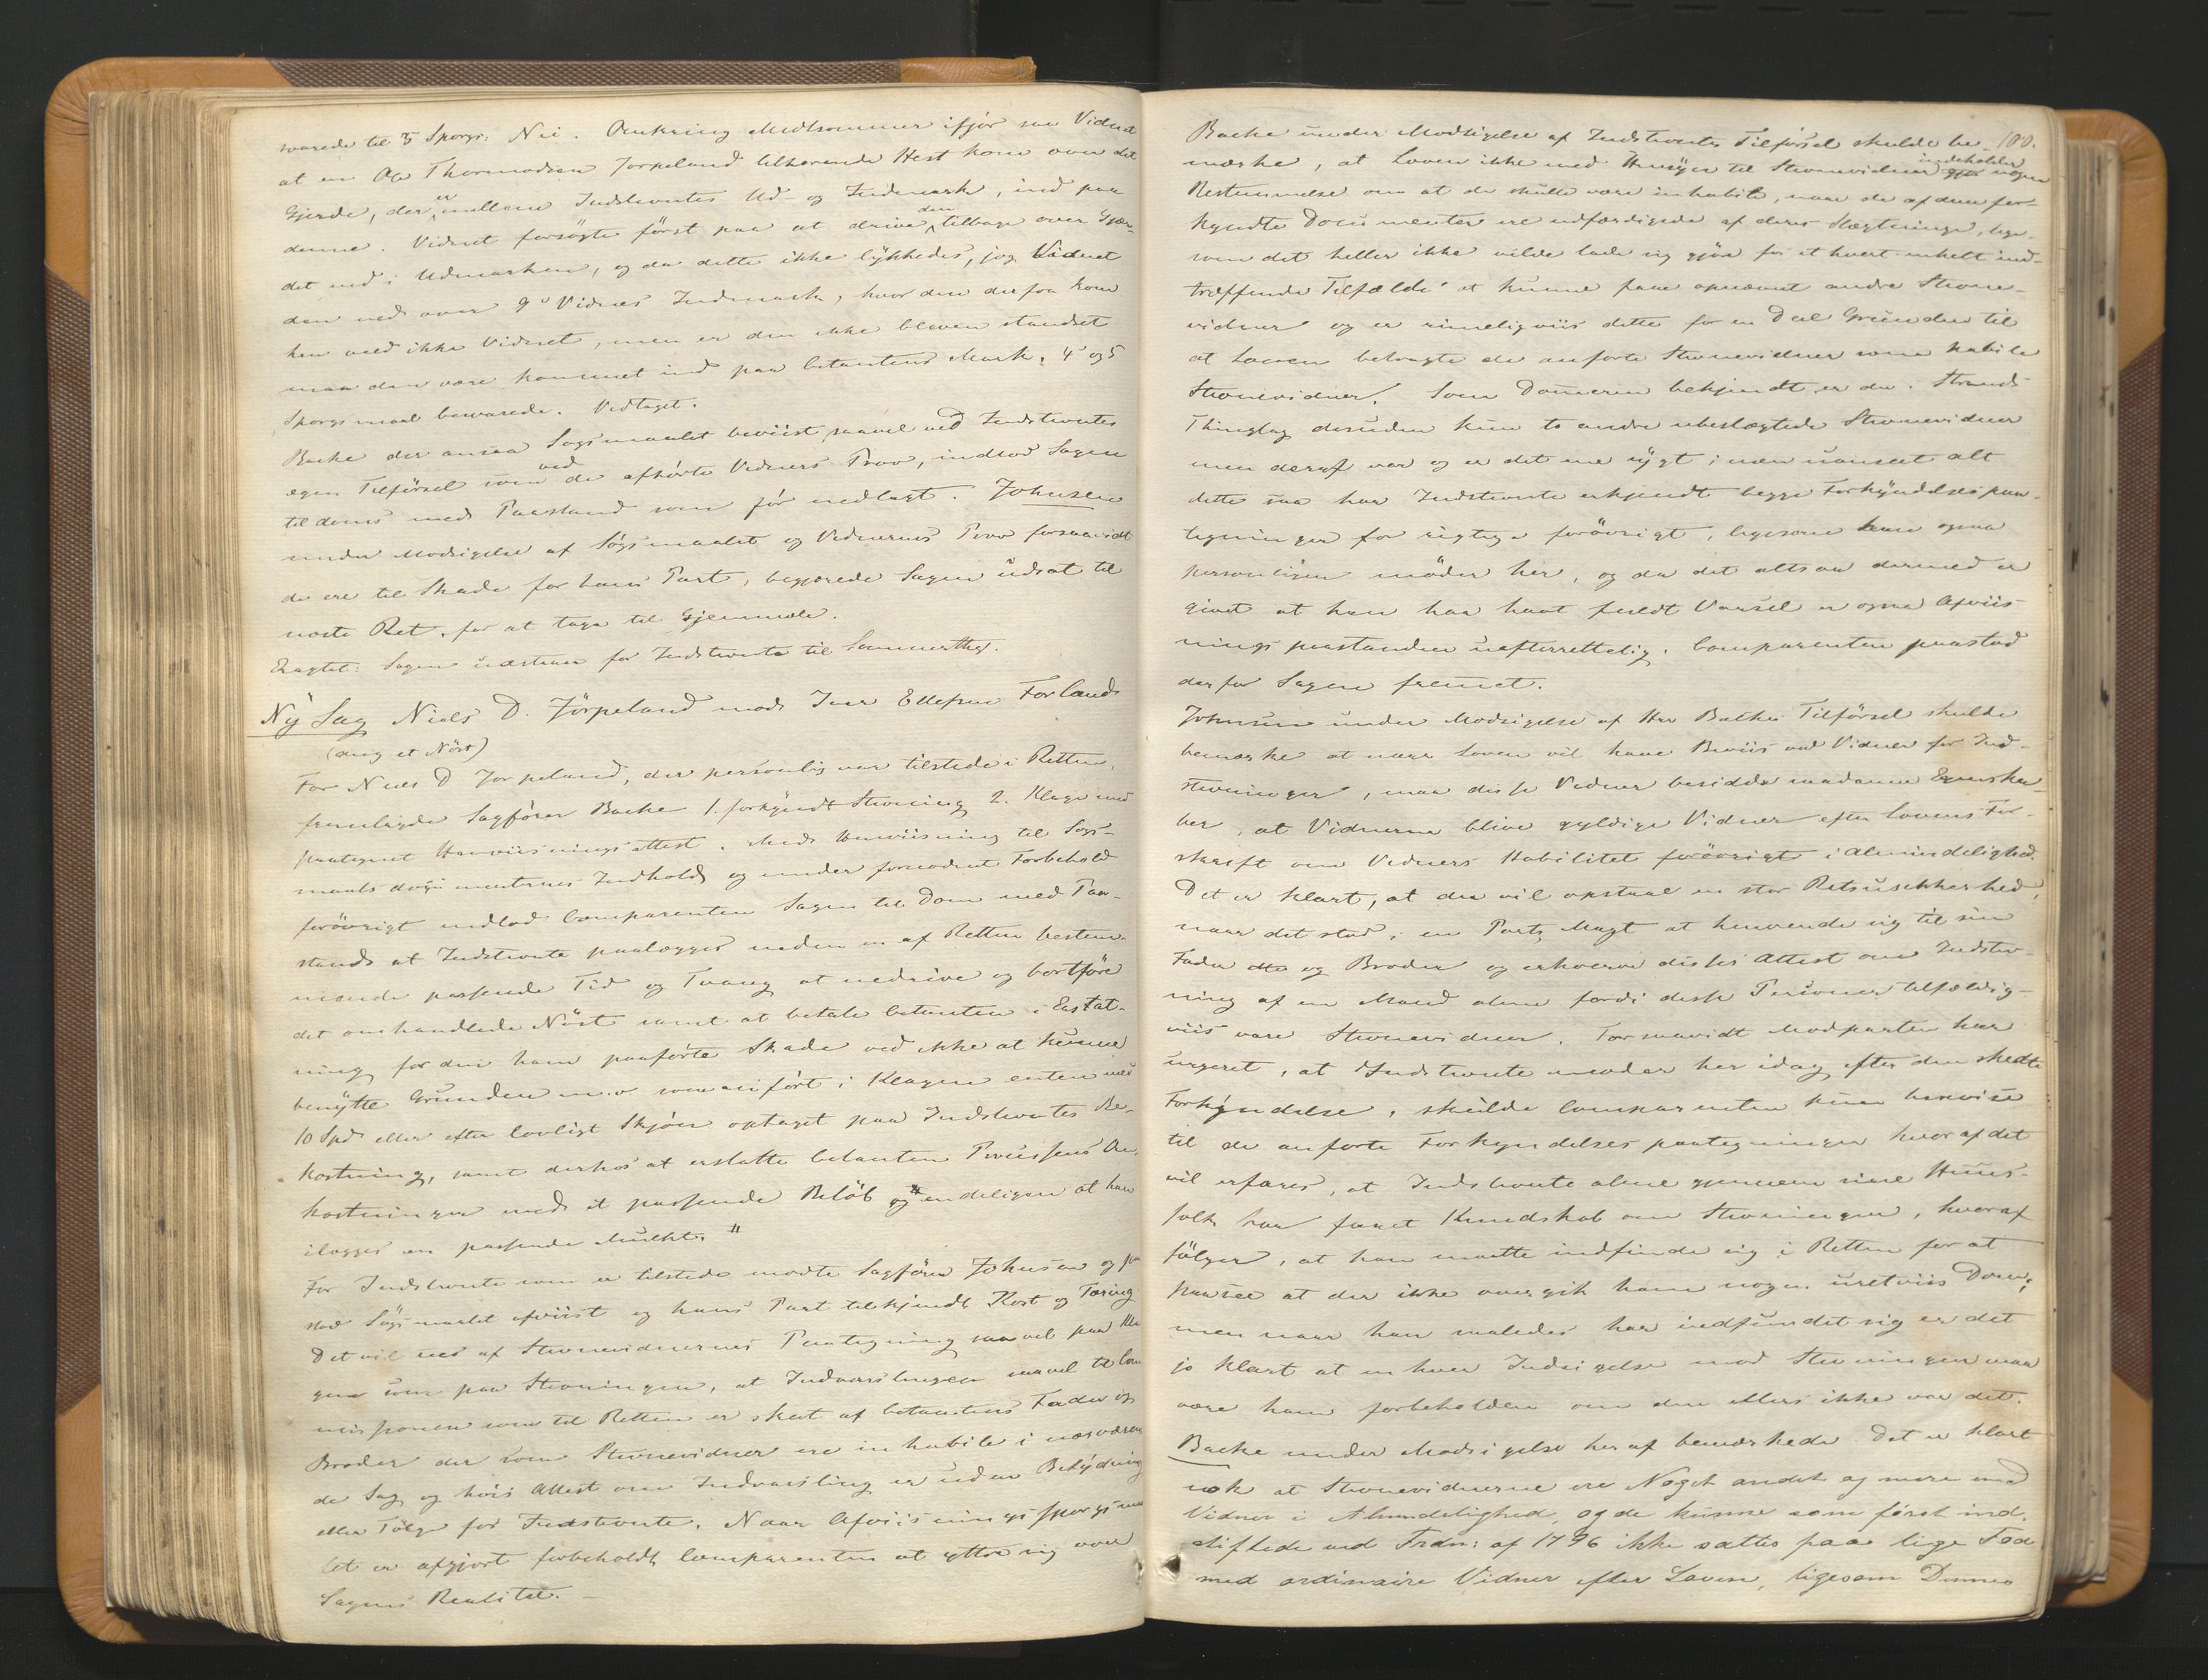 svarede til 3 Sporgs: Nei. Omkring Midtsommer ifjør saa Vidnet
at en Ole Thormodsen Jorpeland tilhørende Hest kom over det
Gjerde, der er mellem Indstevntes Ud- og Indmark, ind paa
denne. Vidnet forsøgte først paa at drive den tilbage over Gjær-
det ned i Udmarken, og da dette ikke lykkedes, jog Vidnet
den ned over 9de Vidnes Indmark, hvor den derfra kom
hen veed ikke Vidnet, men er den ikke bleven standset
maa den være kommet ind paa Citantens Mark. 4 og 5
Sporgsmaal besvarede. Vedtaget.
Backe der ansaa Søgsmaalet beviist saavel ved Indstevntes
egen Tilførsel som ved de afhørte Vidners Prov, indlod Sagen
til doms med Paastand som før nedlagt. Johnsen
under Modsigelse af Søgsmaalet og Vidnernes Prov forsaavidt
de ere til Skade for hans Part, begjærede Sagen udsat til
næste Ret, for at tage til Gjenmæle.
Eragtet: Sagen udstaar for Indstevnte til Sommerthg.
Ny Sag Niels D. Jörpeland mod Iver Ellefsen Forland
(ang et Nöst)
For Niels D Jorpeland, der personlig var tilstede i Retten,
fremlagde Sagfører Backe 1. forkyndt Stevning 2. Klage med
paategnet Henviisningsattest. Med Henviisning til Søgs-
maalsdokumenternes Indhold og under fornødent Forbehold
forövrigt indlod Comparenten Sagen til Dom med Paa-
stand at Indstevnte paalægges inden en af Retten bestem-
mende passende Tid og Tvang at nedrive og bortføre
det omhandlede Nöst samt at betale Citanten i Erstat-
ning for den ham paaførte Skade ved ikke at kunne
benytte Grunden m.v. som anført i Klagen enten med
10 Spd eller efter lovligt Skjøn optaget paa Indstevntes Be-
kostning, samt derhos at erstatte Citanten Processens Om-
kostninger med et passende Beløb og # endeligen at han
ilægges en passende Mulkt. #
For Indstevnte som er tilstede mødte Sagfører Johnsen og paa
stod Søgsmaalet afviist og hans Part tilkjendt Kost og Tæring
Det vil sees af Stevnevidnernes Paategning saavel paa Kla
gen som paa Stevningen, at Indvarslingen saavel til Com
missionen som til Retten er skeet af Citantens Fader og
Broder der som Stevnevidner ere inhabile i nærværen
de Sag og hvis Attest om Indvarsling er uden Betydning
eller Følge for Indstevnte. Naar Afviisningsspørgsmaa
let er afgjort forbeholdt Comparenten at yttre sig over
Sagens Realitet. -
100.
Backe under Modsigelse af Indstevntes Tilførsel skulde be-
mærke, at Loven ikke med Hensyn til Stevnevidner indeholder nogen
Bestemmelse om at de skulle være inhabile, naar de af dem for-
kyndte Documenter ere udfærdigede af deres Slægtninge, lige-
som det heller ikke vilde lade sig gjöre for et hvert enkelt ind-
træffende Tilfælde at kunne faae opnævnt andre Stevne-
vidner og er rimeligviis dette for en Deel Grunden til
at Loven betragte de anførte Stevnevidner som habile
Stevnevidner. Som Dommeren bekjendt er der i Strands
Thinglag desuden kun to andre ubeslægtede Stevnevidner
men deraf var og er det ene sygt; men uanseet alt
dette saa har Indstevnte erkjendt begge Forkyndelsespaa-
tegninger for rigtige forövrigt, ligesom han ogsaa
personligen möder her, og da det altsaa dermed er
givet at han har havt fuldt Varsel er ogsaa Afviis-
ningspaastanden uefterrettelig. Comparenten paastod
derfor Sagen fremet.
Johnsen under Modsigelse af Hr Backes Tilførsel skulde
bemærke at naar Loven vil have Beviis ved Vidner for Ind-
stevninger, maa disse Vidner besidde saadanne Egenska-
ber, at Vidnerne blive gyldige Vidner efter Lovens For-
skrift om Vidners Habilitet forövrigt i Almindelighed.
Det er klart, at der vil opstaae en stor Retsusikkerhed,
naar det stod i en Parts Magt at henvende sig til sin
Fader og Broder og erhverve disses Attest om Indstev-
ning af en Mand alene fordi disse Personer tilfældig-
viis vare Stevnevidner. Forsaavidt Modparten har
urgeret, at Indstevnte møder her idag efter den skedte
Forkyndelse, skulde Comparenten kun henvise
til de anførte Forkyndelsespaategninger hvoraf det
vil erfares, at Indstevnte alene gjennem sine Huus-
folk har faaet Kundskab om Stevningen, hvoraf
følger, at han maatte indfinde sig i Retten for at
paasee at der ikke overgik ham nogen uretviis Dom;
men naar han saaledes har indfundet sig er det
jo klart at en hver Indsigelse mod Stevningen maa
være ham forbeholden om den ellers ikke var det.
Backe under Modsigelse heraf bemærkede. Det er klart
nok at Stevnevidnerne ere Noget andet og mere end
Vidner i Almindelighed, og de kunne som først ind-
stiftede ved Frdn: af 1796 ikke sættes paa lige Fod
med ordinaire Vidner efter Loven, ligesom Dennes